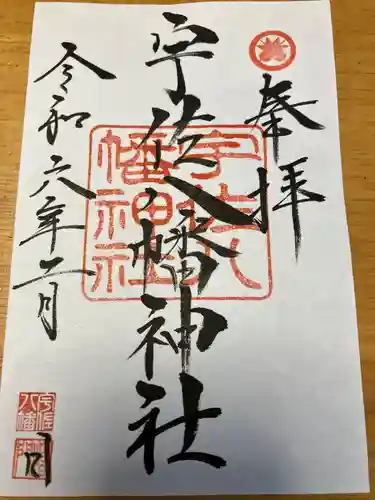 奉拝
宇佐八幡神社
令和六年二月
宇佐八幡神社
宇佐
八幡